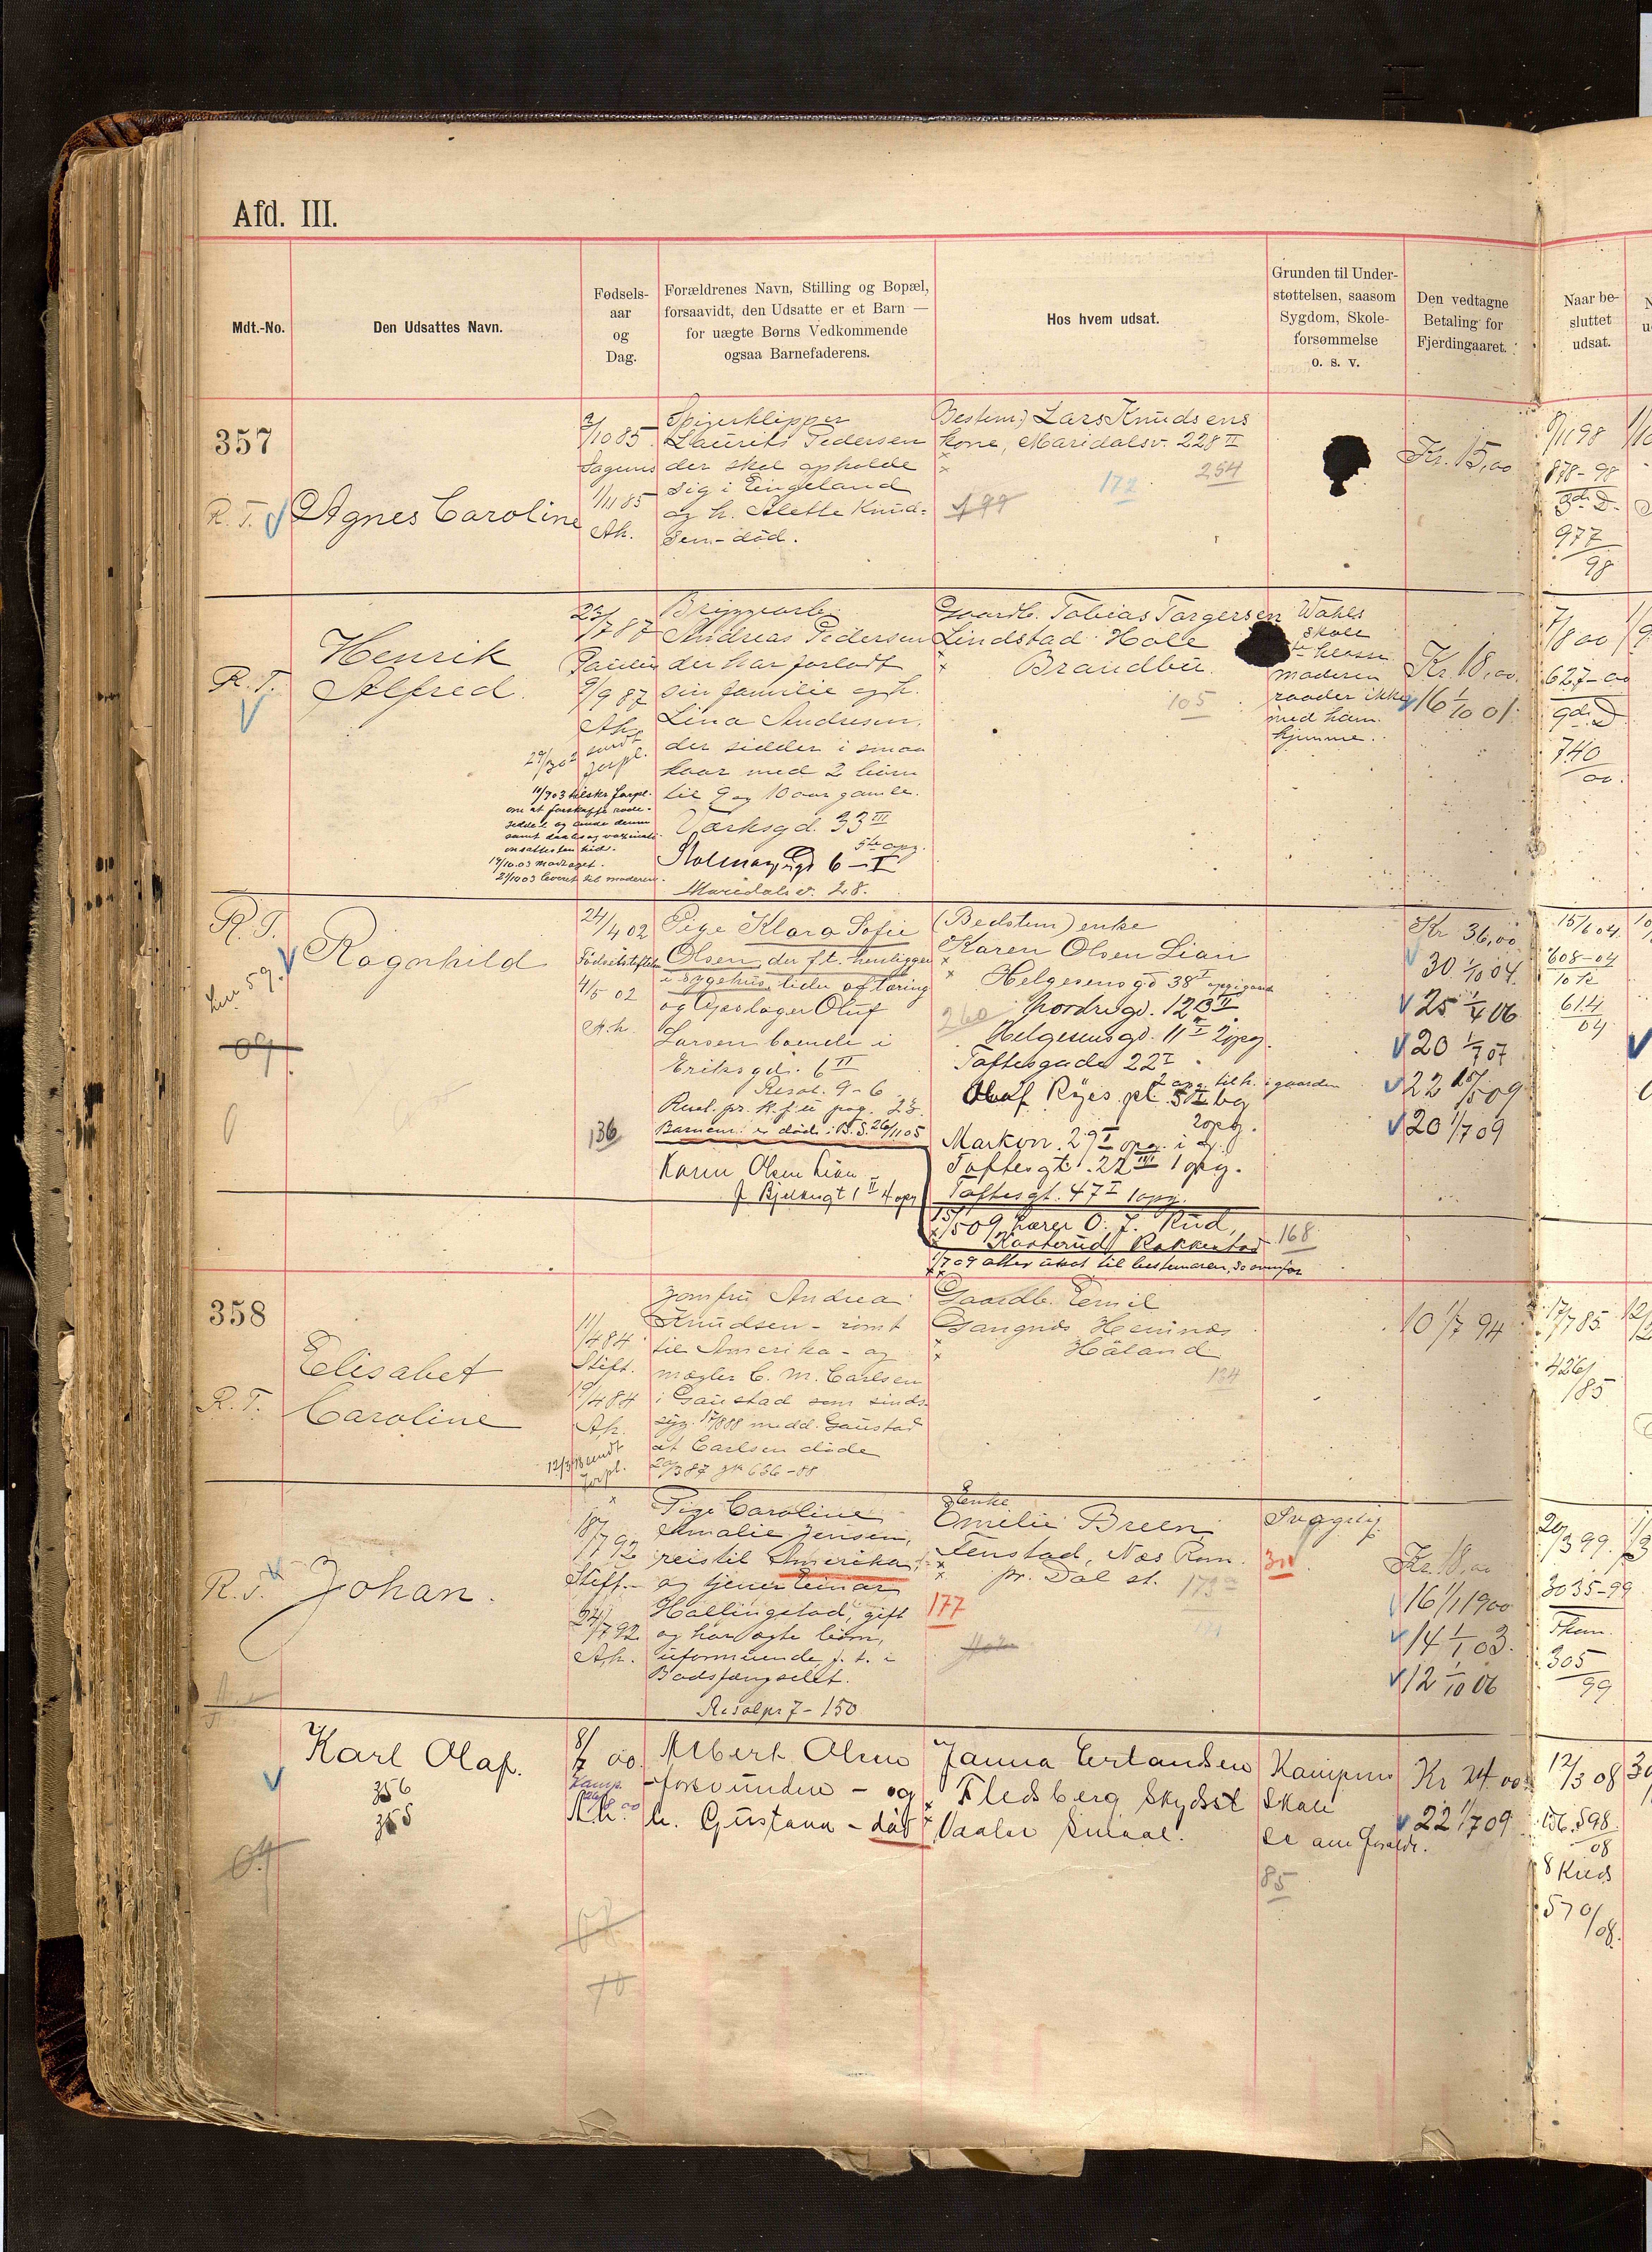 Afd. III.
Mdt.-No.
Den Udsattes Navn.
Fødsels-
aar
og
Dag.
Forældrenes Navn, Stilling og Bopæl,
forsaavidt, den Udsatte er et Barn —
for uægte Børns Vedkommende
ogsaa Barnefaderens.
Hos hvem udsat.
Grunden til Under-
støttelsen, saasom
Sygdom, Skole-
forsømmelse
o. s. v.
Den vedtagne
Betaling for
Fjerdingaaret.
Naar be-
sluttet
udsat.
357
R. T.
Agnes Caroline
2/10 85
1/11 85
Ak.
Spigerklipper
Laurits Pedersen
der skal opholde
sig i Eingeland
og h. Alette Knud-
sen - död.
Bestem) Lars Knudsens
kone, Maridalsv. 228 II
172
254
199
Kr. 15,00
9/11 98
878-98
3die D.
977
98
R. T.
Henrik
Alfred.
23/7 87
Paulus
9/9 87
Ak.
sendt
Forpl.
Bryggearb.
Andreas Pedersen
der har forladt
sin familie og h.
Lina Andresen,
der sidder i smaa
kaar med 2 börn
til 9 og 10 aar gamle.
Værksgd. 33 III
5te opg.
6 - I
Maridalsv. 28.
Gaardb. Tobias Torgersen
Lindstad Hole
Brandbu.
105
Wahls
skole
klasse
moderen
raader ikke
med ham
hjemme.
Kr. 18,00.
16 1/10 01.
7/8 00
627-00
9de D
740
00.
14/10.03 modtaget.
21/10 03 leveret til moderen.
R. T.
59.
09
Ragnhild
24/4 02
Födselsstiftelsen
4/5 02
A.h.
136
Pige Klara Sofie
Olsen der f.t. henligger
i sygehus, lider af tæring
og Gjæslager Oluf
Larsen boende i
Eriks gd. 6 II
Resol. 9-6
Barnem. er död i B.S. 26/11 05
Karen Olsen Lian
Bjelkesgt 1 II 4 opg
(Bedstem) enke
Karen Olsen Lian
Helgesens gd 38 I opg i gaard
Nordregd. 12 B II
Helgesensgd. 11 I 2 opg.
260
Toftesgade 22 I
2 opg. til h. i gaarden
Olaf Ryes pl. 5 II bg
2 opg.
Markvn. 29 I opg. i g.
Toftesgt. 22 III 1 opg.
Toftesgt. 47 I 1 opg.
15/5 09 hærer O. J. Rud,
Kasterud, Rakkestad
168
1/7 09 atter utsat til bestemoren, se ovenfor
Kr 36,00
30 1/10 04.
25 1/4 06
20 1/7 07
22 15/5 09
20 1/7 09
15/6 04.
608-04
10 de
614
04
358
R. T.
Elisabet
Caroline
11/4 84
Stift.
19/4 84
Ak.
sendt
Forpl.
Jomfru Andrea
Knudsen - römt
til Amerika - og
mægler C. M. Carlsen
i Gaustad som sinds-
syg. 17/8 88 medd. Gaustad
at Carlsen döde
20/3 87 jr 636-88
Gaardb. Emil
Gangnæs Hemnæs
Höland
134
10 1/7 94
17/7 85.
426/85
R. T.
Johan.
18/7 92
Stift.
24/7 92
A.h.
Pige Caroline
Amalie Jensen,
reis til Amerika,
og tjener Einar
Hallingstad, gift
og har ægte börn,
uformuende, f. t. i
Bodsfængselet.
Resol pr 7 - 150
Enke
Emilie Breen,
Tenstad, Næs Rom.
pr. Dal st.
173
177
Svagelig
30
Kr. 18,00
16 1/1 1900
14 1/1 03.
12 1/10 06
20/3 99.
3035-99
Tham.
305
99
Karl Olaf.
356
355
09
8/7 00.
Kamp.
A.h.
Albert Olsen
- forsvunden - og
h. Gustava - död
Janna Erlandsen
Fledsberg Skydsst
Vaaler Smaal.
Kampens
Skole
se am forældr.
85
Kr 24.00
22 1/7 09
12/3 08
156.598
08
8 Kreds
570/08.